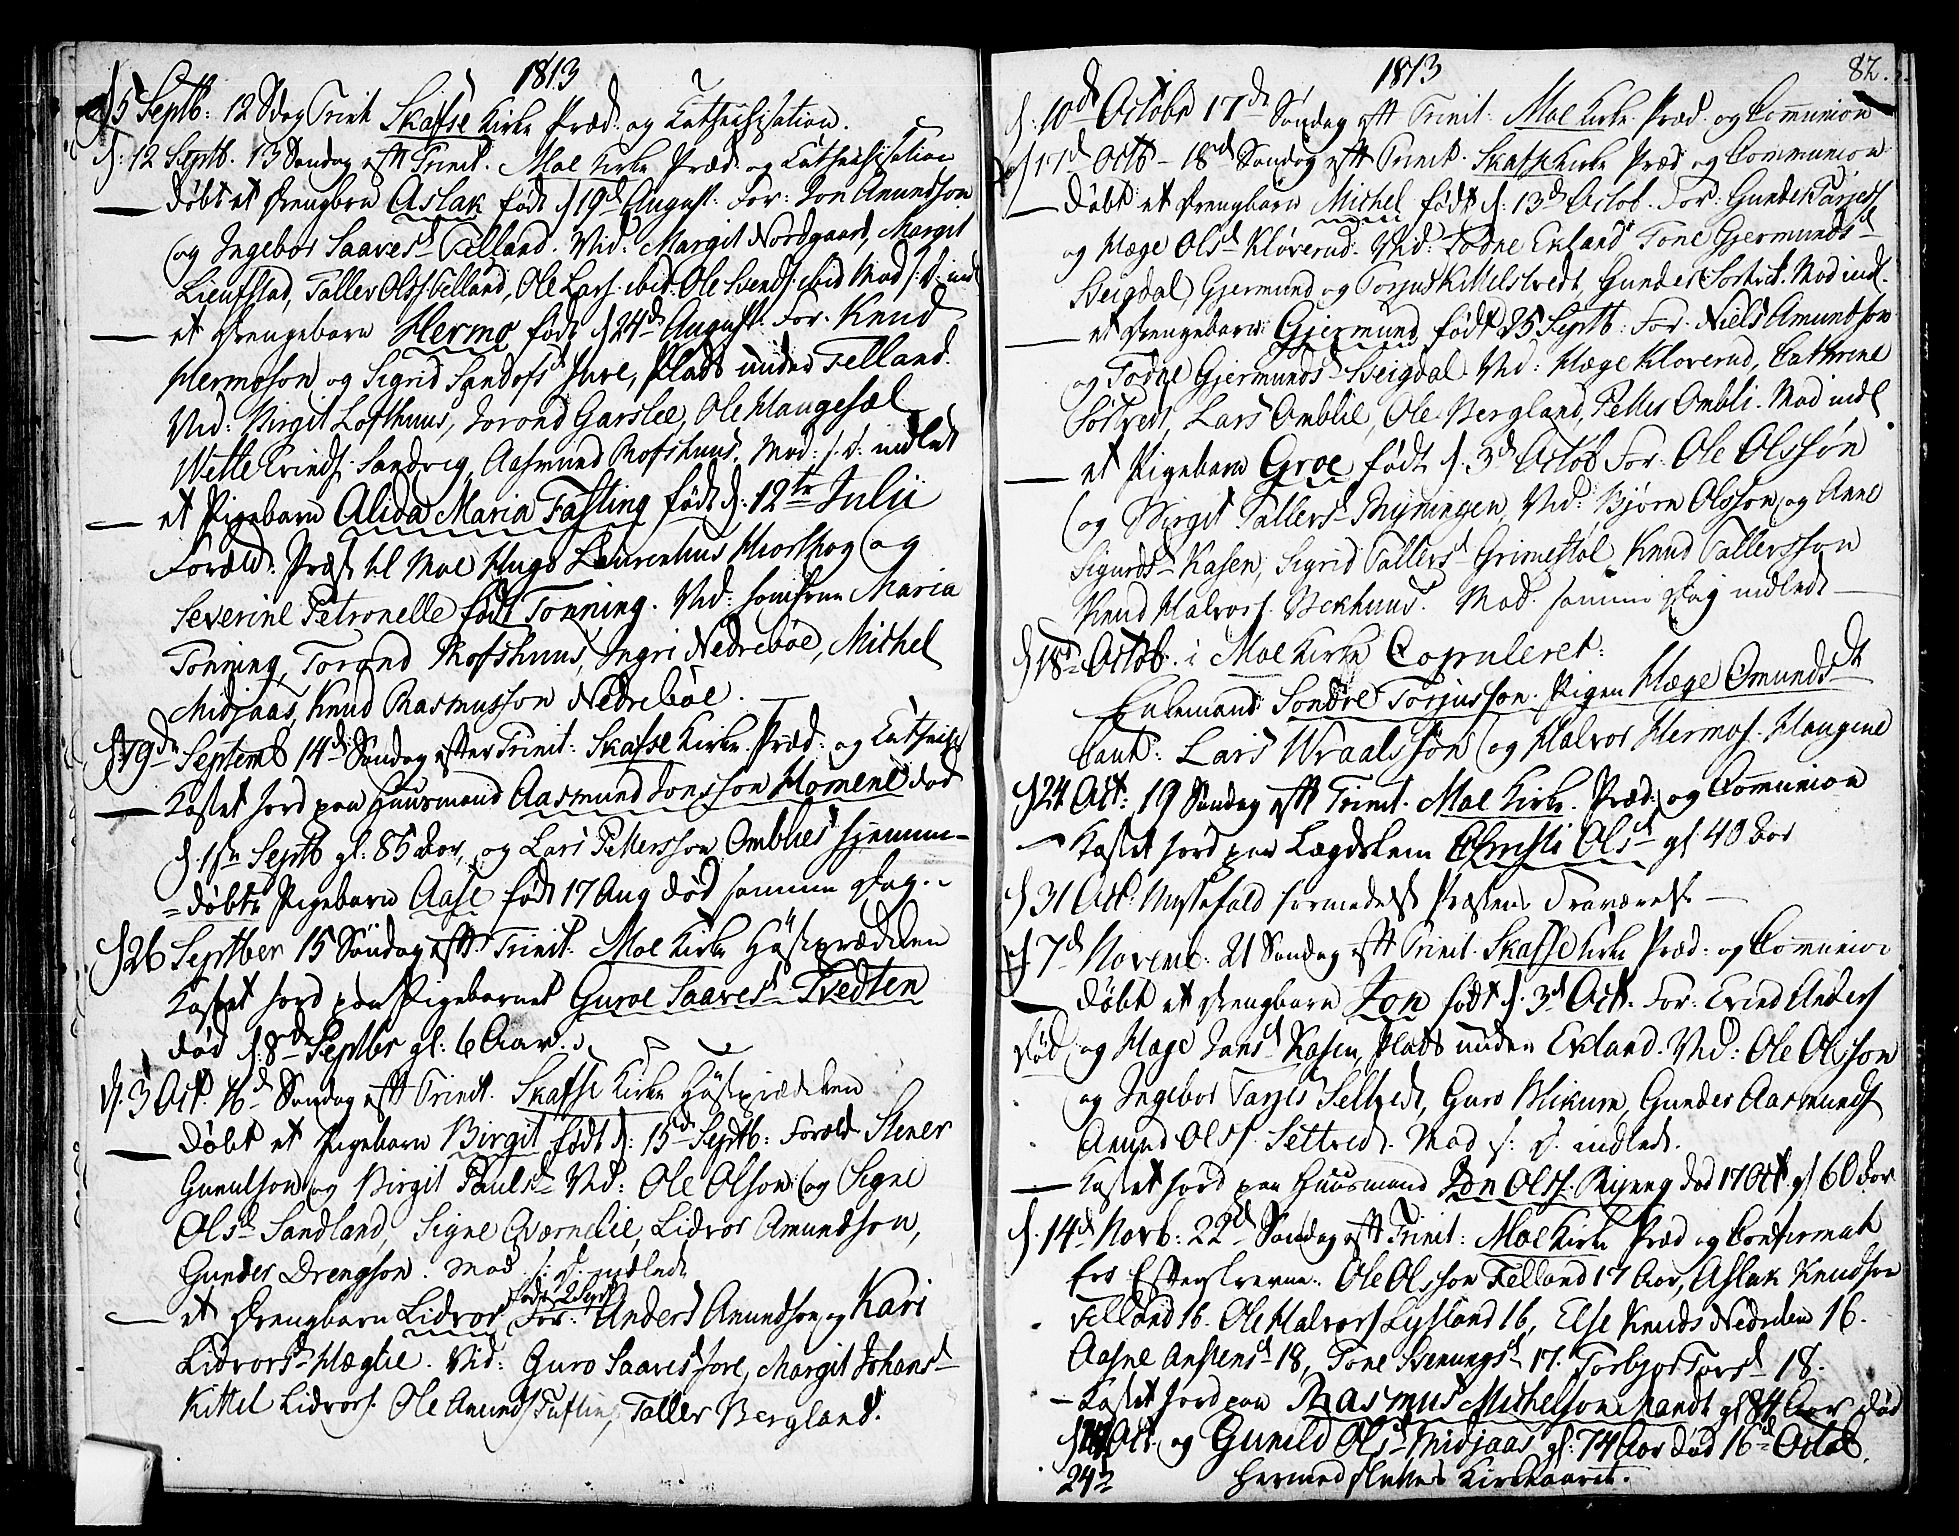 1813
d 5 Septb: 12 Sdag Trinit Skafse Kirke Præd: og Cathechisation.
d: 12 Septb. 13 Søndag eft Trinit. Moe Kirke Præd. og Cathechisation
— døbt et Drengbarn Aslak født d 19d August. For: Jon Amundson
og Ingebor Saavesd Felland. Vid: Margit Nordgaard, Margit
Taller Olss Felland, Ole Lars. ibid. Ole Svends. ibid Mod s: D: indl
— et Drengebarn Hermo født d 24d August. For. Knud
Hermoson og Sigrid Sandofsd Jure, Plads under Felland.
Vid: Birgit Lofthuus, Jorond Garslee, Ole Haugesæl
Wetle Eivinds. Sandvig, Aasmund Rofshuus. Mod: s. D: indledt
— et Pigebarn Alida Maria Fasling født d: 12te Julii
Foræld: Præst til Moe Hugo Laurentius Hiorthog og
Severine Petronelle født Tonning. Vid: Jomfrue Maria
Tonning, Torond Rofshuus, Ingri Nedrebøe, Michel
Midjaas, Knud Rasmusson Nedrebøe.
d 19de Septemb 14d Søndag efter Trinit: Skafse Kirke. Præd: og Cathechis
— Kastet Jord paa Huusmand Aasmund Jonsson Momene død
d. 1ste Septb gl. 85 Aar, og Lars Pettersson Omblies hjemme-
=døbte Pigebarn Aase født 17 Aug død samme Dag.
d 26 Septber 15 Søndag eft Trinit. Moe Kirke Høstprædiken
Kastet Jord paa Pigebarnet Guroe Saavesd Tvedten
død d. 8de Septbr gl: 6 Aar.
d. 3 Oct. 16d Søndag eft Trinit. Skafse Kirke Høstprædiken
— Døbt et Pigebarn Birgit født d: 15d Septb: Foræld Stener
Gunulson og Birgit Paulsd Vid: Ole Olson og Signe
Olsd Sandland, Signe Qværnelie, Lidvor Amundson,
Gunder Drengson. Mod s: D. indledt
født 2 Sept
— et Drengbarn Lidvor For: Anders Amundson og Kari
Lidvorsd Hæglie. Vid: Guro Saavesd Jore, Margit Johansd
Kittel Lidvors. Ole Amunds Tuftin, Taller Bergland.
1813
82.
d. 10de Octobr 17de Søndag eft Trinit: Moe Kirke Præd. og Communion
d 17d Octb - 18d Søndag eft Trinit. Skafse Kirke Præd og Communion
— døbt et Drengbarn Michel født d: 13d Octob. For: Gunder Tarjess
og Hæge Olsd Kløverud. Vid: Todne Ekland Tone Gjermundsd
Seigdal, Gjermund og Torjus Kittelstvedt, Gunder Mod indl.
— et Drengebarn Gjermund født 25 Septb: For. Niels Amundson
og Todne Gjermundsd Seigdal Vid: Hæge Kloverud, Cathrine
Lars Omblie, Ole Bergland, Petter Ombli. Mod indl
— et Pigebarn Groe født d. 3d Octob For: Ole Olssøn
og Birgit Tallersd Myningen, Vid: Bjørn Olsson og Anne
Sigurdsd Kasen, Sigrid Tallersd Grimestøl, Knud Tallersson
Knud Halvors. Mod. samme Dag indledt —
d 18d Octob. i Moe Kirke Copuleret:
Enkemand Sondre Torjusson. Pigen Hæge Omundsdt
Caut: Lars Wraalsson og Halvor Hermos. Haugene
d 24 Oct: 19 Søndag eft Trinit. Moe Kirke. Præd. og Communion
— Kastet Jord paa Lægdslem Christi Olsd gl 40 Aar
d 31 Oct: Messefald formedelst Præstens Fraværelse —
d 7d Novemb: 21 Søndag eft Trinit. Skafse Kirke Præd: og Communion
— døbt et Drengbarn Jon født d. 3d Oct. For: Evind Anders
død og Hage Jansd Kasen Plads under Ekland. Vid: Ole Olsson
og Ingebor Tarjes Seltvedt, Guro Mikum, Gunder Aasmunds
Amund Olss. Settvedt. Mod s: D. indledt.
— Kastet Jord paa Huusmand Jon Olss. død 17 Oct gl 60 Aar
d. 14d Novb: 22d Søndag eft Trinit: Moe Kirke Præd og Confirmat
Efterskrevne: Ole Olsson Felland 17 Aar, Aslak Knudson
Felland 16. Ole Halvors Lysland 16, Else Knuds 16.
Aasne Anstensd 18, Tone Svenungsd 17. Torbjor Torsd 18.
— Kastet Jord paa Rasmus Michelson Mandt gl 84 Aar død
Oct. og Gunild Olsd Midjaas gl: 74 Aar død 16d Octob.
24d
Hermed sluttes Kirkeaaret.